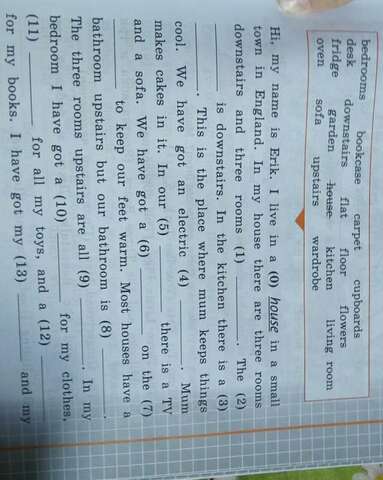 bedrooms bookcase carpet cupboards
desk downstairs flat floor flowers
fridge garden house kitchen living room
oven sofa upstairs wardrobe
Hi, my name is Erik. I live in a (0) house in a small
town in England. In my house there are three rooms
downstairs and three rooms (1) ______. The (2)
______ is downstairs. In the kitchen there is a (3)
______. This is the place where mum keeps things
cool. We have got an electric (4) ______. Mum
makes cakes in it. In our (5) ______ there is a TV
and a sofa. We have got a (6) ______ on the (7)
______ to keep our feet warm. Most houses have a
bathroom upstairs but our bathroom is (8) ______.
The three rooms upstairs are all (9) ______. In my
bedroom I have got a (10) ______ for my clothes,
(11) ______ for all my toys, and a (12) ______
for my books. I have got my (13) ______ and my